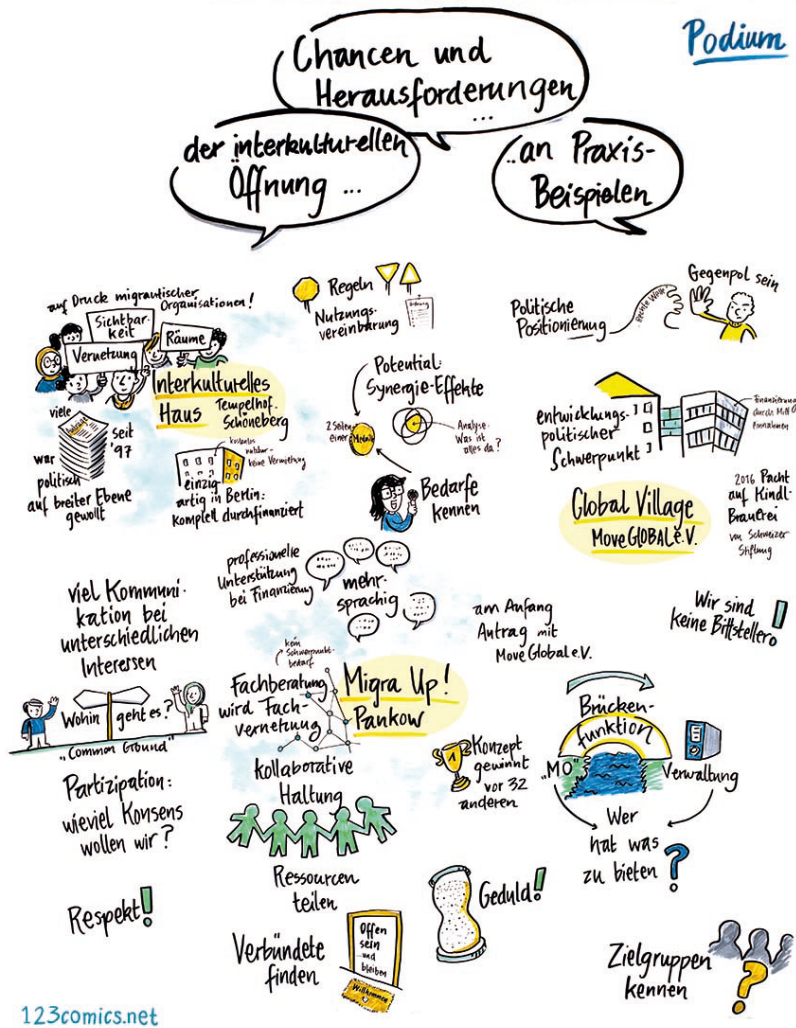 Podium
Chancen und
Herausforderungen
...
der interkulturellen
Öffnung ...
...an Praxis-
Beispielen
auf Druck migrantischer
Organisationen!
Sichtbar-
keit
Vernetzung
Räume
Interkulturelles
Haus
Tempelhof-
Schöneberg
viele
seit
'97
war
politisch
auf breiter Ebene
gewollt
kostenlos
nutzbar-
keine Vermietung
einzig-
artig in Berlin:
komplett durchfinanziert
Regeln
Nutzungs-
vereinbarung
Potential:
Synergie-Effekte
2 Seiten
einer
Medaille
Analyse:
Was ist
alles da?
Bedarfe
kennen
Politische
Positionierung
rechte Welle
Gegenpol sein
entwicklungs-
politischer
Schwerpunkt
Finanzierung
durch
Einnahmen
Global Village
MoveGLOBAL e.V.
2016 Pacht
auf Kindl-
Brauerei
von Schweizer
Stiftung
professionelle
Unterstützung
bei Finanzierung
mehr-
sprachig
viel Kommuni-
kation bei
unterschiedlichen
Interessen
Wohin geht es?
"Common Ground"
Partizipation:
wieviel Konsens
wollen wir?
Respekt!
kein
Schwerpunkt-
bedarf
Fachberatung
wird Fach-
vernetzung
Migra Up!
Pankow
kollaborative
Haltung
Ressourcen
teilen
Verbündete
finden
Offen
sein
und
bleiben
Willkommen
am Anfang
Antrag mit
MoveGlobal e.V.
1
Konzept
gewinnt
vor 32
anderen
Geduld!
Wir sind
keine Bittsteller!
Brücken-
funktion
"MO"
Verwaltung
Wer
hat was
zu bieten?
Zielgruppen
kennen
?
123comics.net